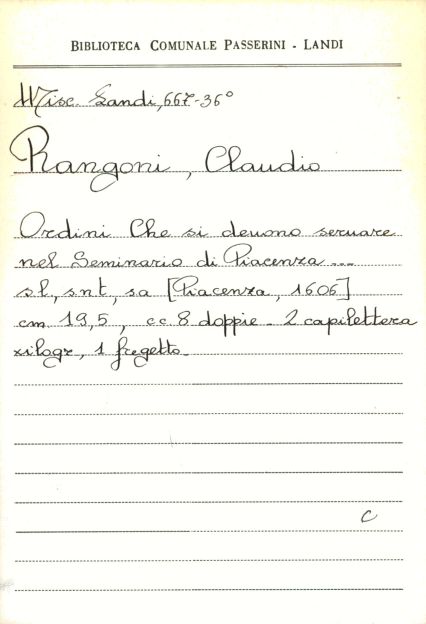 BIBLIOTECA COMUNALE PASSERINI - LANDI
Misc. Landi, 667-36°
Rangoni, Claudio
Ordini Che si deuono seruare
nel Seminario di Piacenza ...
s.l., s.n.t, s.a [Piacenza, 1606]
cm 19,5, cc 8 doppie - 2 capilettera
xilogr, 1 fregetto.
C